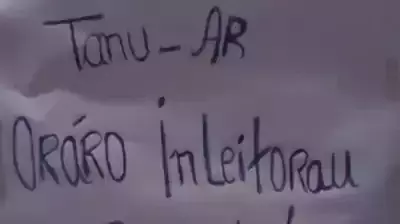 Tanu-AR
ORÁRO inLeitoRau